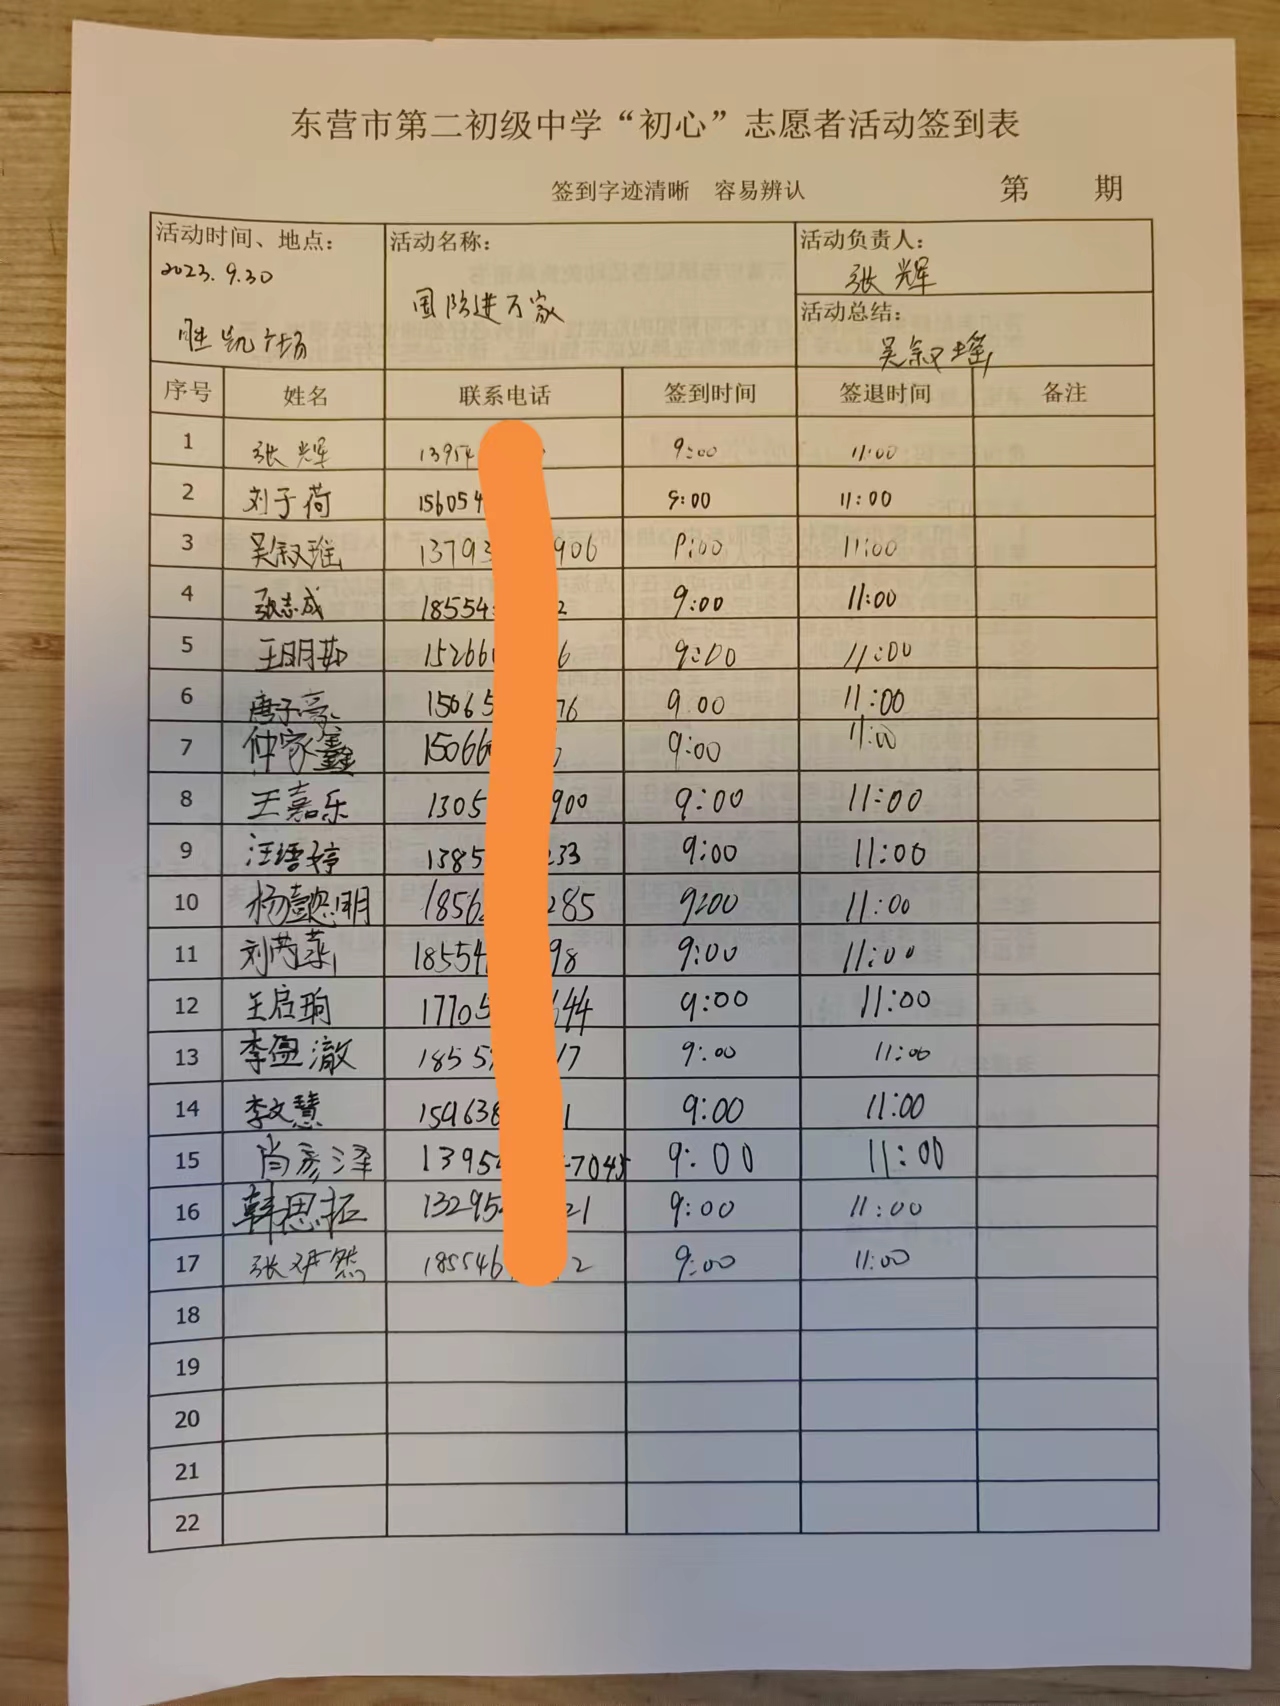 东营市第二初级中学“初心”志愿者活动签到表
签到字迹清晰 容易辨认 第 期
活动时间、地点： 活动名称： 活动负责人：
2023.9.30 国防进万家 张辉
胜凯广场 活动总结：
吴叙瑶
序号 姓名 联系电话 签到时间 签退时间 备注
1 张辉 13954 9:00 11:00
2 刘于荷 156054 9:00 11:00
3 吴叙瑶 13793 906 9:00 11:00
4 张志成 18554 2 9:00 11:00
5 王明茹 15266 6 9:00 11:00
6 唐子豪 15065 76 9:00 11:00
7 仲家鑫 15066 9:00 11:00
8 王嘉乐 1305 900 9:00 11:00
9 汪语婷 1385 233 9:00 11:00
10 杨懿明 1856 285 9:00 11:00
11 刘芮菉 18554 98 9:00 11:00
12 王启珣 17705 644 9:00 11:00
13 李盈澈 1855 17 9:00 11:00
14 李文慧 159638 1 9:00 11:00
15 尚彦泽 13954 7045 9:00 11:00
16 韩思拓 13295 21 9:00 11:00
17 张 然 185546 2 9:00 11:00
18
19
20
21
22